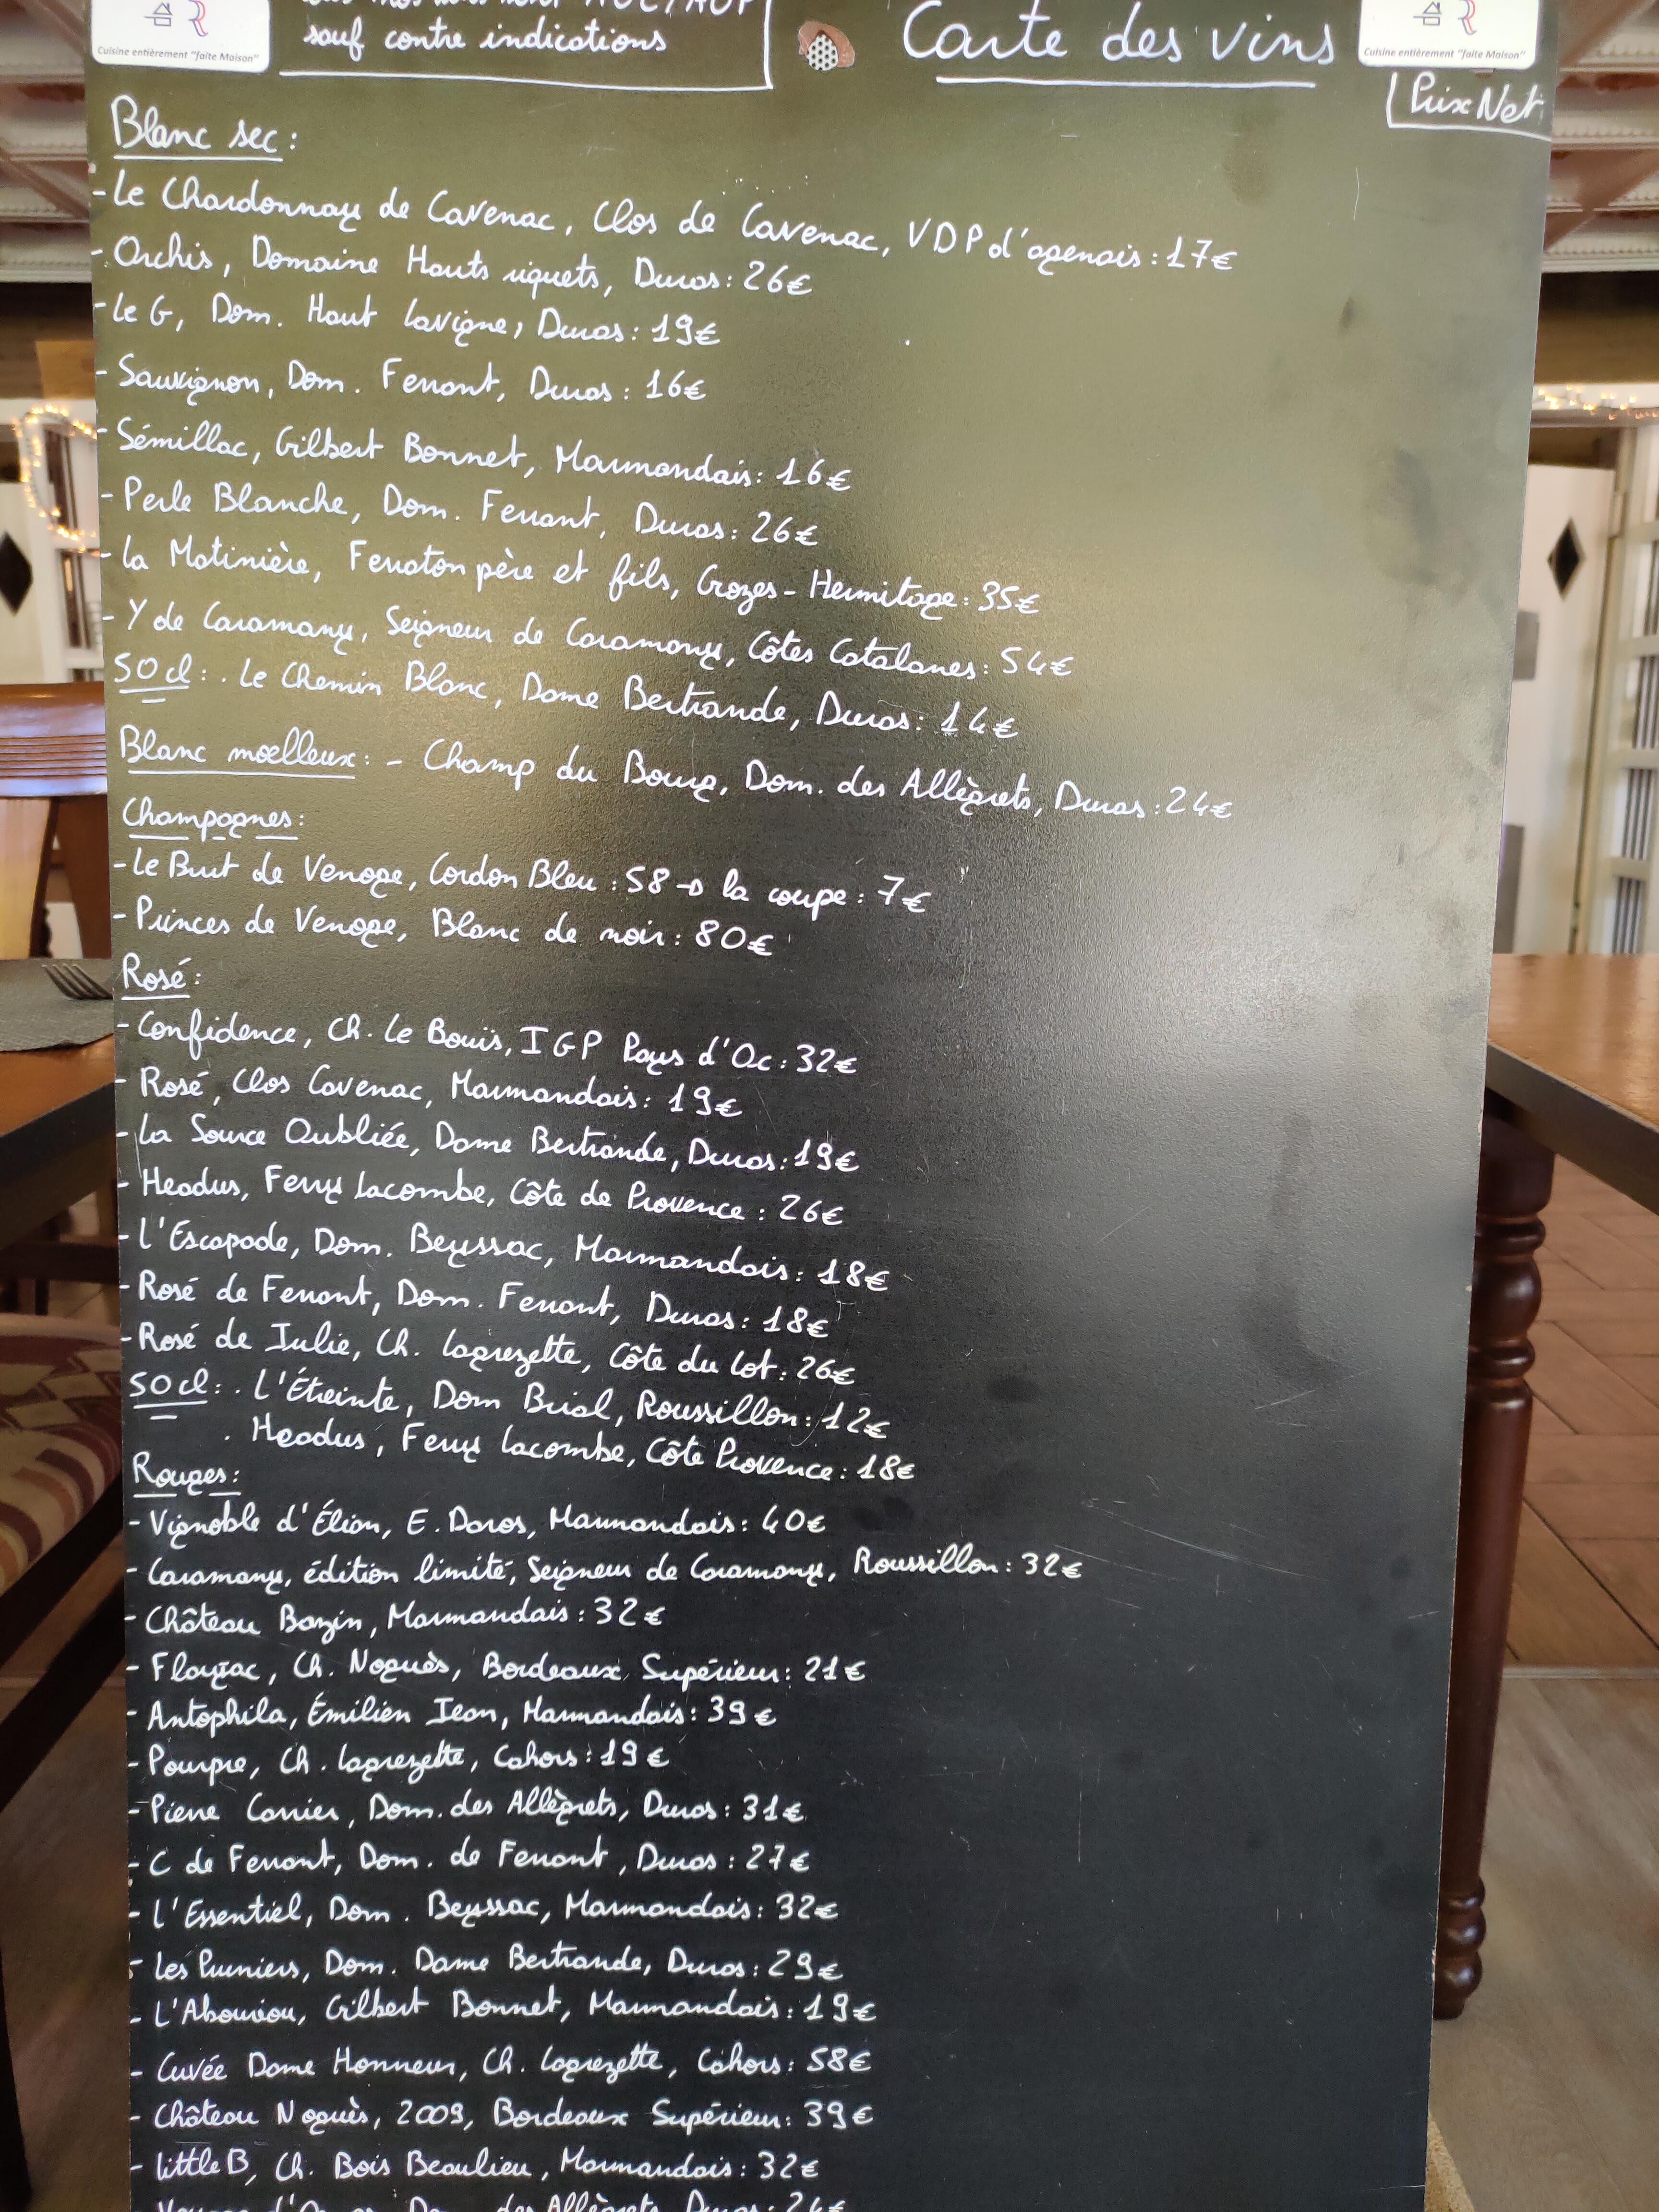 sauf contre indications
Carte des vins
Cuisine entièrement "faite Maison"
Cuisine entièrement "faite Maison"
Prix Net
Blanc sec :
- Le Chardonnay de Cavenac, Clos de Cavenac, VDP d'agenais : 17€
- Orchis, Domaine Hauts riquets, Duras : 26€
- Le G, Dom. Haut Lavigne, Duras : 19€
- Sauvignon, Dom. Ferrant, Duras : 16€
- Sémillac, Gilbert Bonnet, Marmandais : 16€
- Perle Blanche, Dom. Ferrant, Duras : 26€
- La Matinière, Ferraton père et fils, Crozes-Hermitage : 35€
- Y de Caramany, Seigneur de Caramany, Côtes Catalanes : 54€
50 cl : . Le Chemin Blanc, Dame Bertrande, Duras : 14€
Blanc moelleux : - Champ du Bourg, Dom. des Allègrets, Duras : 24€
Champagnes :
- Le Brut de Venoge, Cordon Bleu : 58 → la coupe : 7€
- Princes de Venoge, Blanc de noir : 80€
Rosé :
- Confidence, Ch. Le Bouïs, IGP Pays d'Oc : 32€
- Rosé, Clos Cavenac, Marmandais : 19€
- La Source Oubliée, Dame Bertrande, Duras : 19€
- Headus, Ferry Lacombe, Côte de Provence : 26€
- L'Escapade, Dom. Beyssac, Marmandais : 18€
- Rosé de Ferrant, Dom. Ferrant, Duras : 18€
- Rosé de Julie, Ch. Lagrezette, Côte du Lot : 26€
50 cl : . L'Étreinte, Dom Brial, Roussillon : 12€
. Headus, Ferry Lacombe, Côte Provence : 18€
Rouges :
- Vignoble d'Élian, E. Daros, Marmandais : 40€
- Caramany, édition limité, Seigneur de Caramany, Roussillon : 32€
- Château Bazin, Marmandais : 32€
- Flayzac, Ch. Noguès, Bordeaux Supérieur : 21€
- Antophila, Émilien Jean, Marmandais : 39€
- Pourpre, Ch. Lagrezette, Cahors : 19€
- Pierre Carrier, Dom. des Allègrets, Duras : 31€
- C de Ferrant, Dom. de Ferrant, Duras : 27€
- L'Essentiel, Dom. Beyssac, Marmandais : 32€
- Les Pruniers, Dom. Dame Bertrande, Duras : 29€
- L'Abouriou, Gilbert Bonnet, Marmandais : 19€
- Cuvée Dame Honneur, Ch. Lagrezette, Cahors : 58€
- Château Noguès, 2009, Bordeaux Supérieur : 39€
- Little B, Ch. Bois Beaulieu, Marmandais : 32€
des Allègrets, Duras : 24€